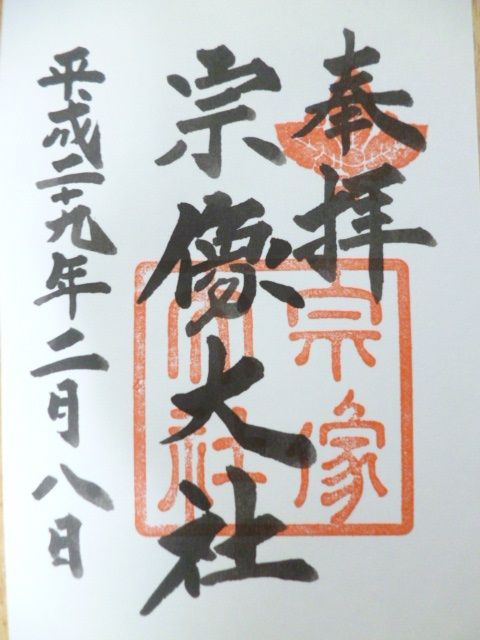 奉拝
宗像大社
平成二十九年二月八日
宗像
大社